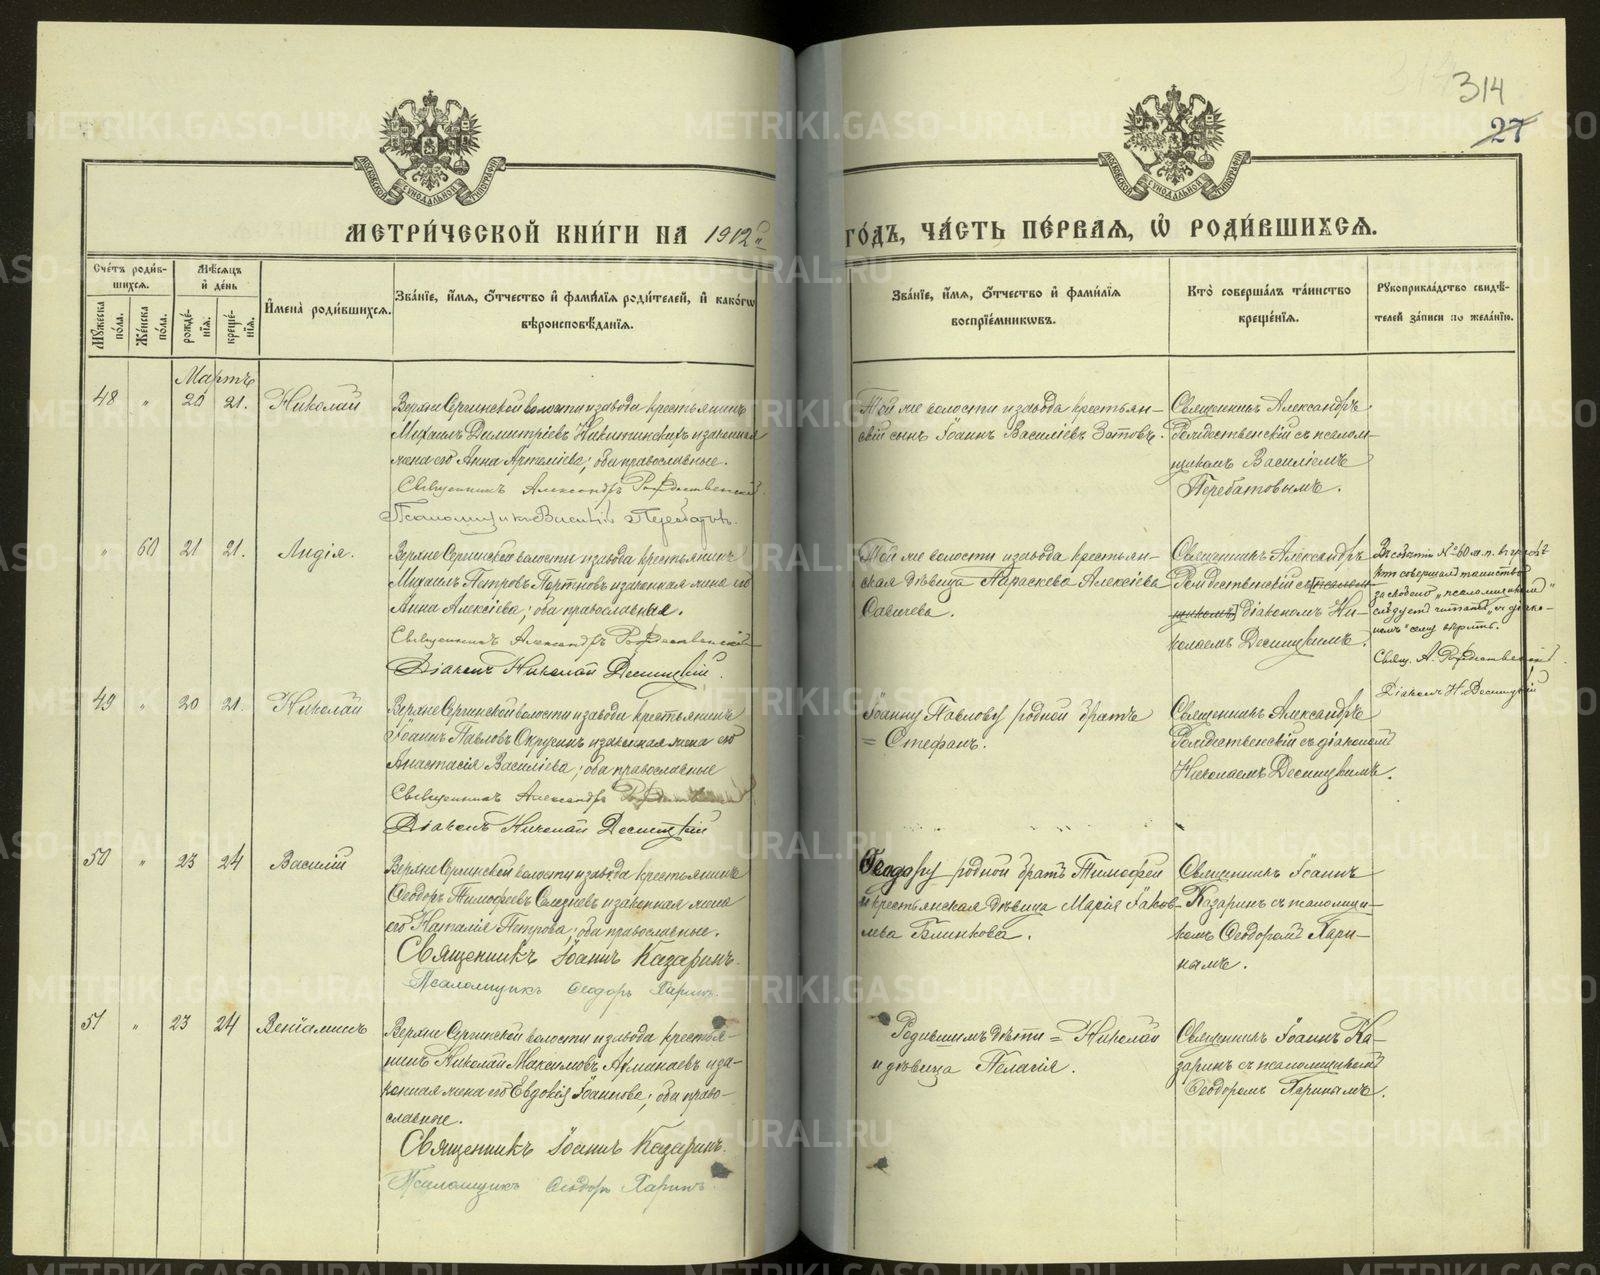 314
27
МОСКОВСКОЙ СѴНОДАЛЬНОЙ ТИПОГРАФІИ
МОСКОВСКОЙ СѴНОДАЛЬНОЙ ТИПОГРАФІИ
МЕТРИ́ЧЕСКОЙ КНИ́ГИ НА 1912й
ГО́ДЪ, ЧА́СТЬ ПЕ́РВАЯ, Ѽ РОДИ́ВШИХСЯ.
Сче́тъ роди́в-
шихся.
Му́жеска по́ла.
Же́нска по́ла.
Мѣ́сяцъ и҆ де́нь
рожде́нїя.
креще́нїя.
И҆мена̀ роди́вшихся.
Зва́нїе, и҆́мя, ѻ҆́тчество и҆ фами́лїя роди́телей, и҆ како́гѡ
вѣроисповѣ́данїя.
Зва́нїе, и҆́мя, ѻ҆́тчество и҆ фами́лїя
воспрїе́мникѡвъ.
Кто̀ соверша́лъ та́инство
креще́нїя.
Рукоприкла́дство свидѣ́-
телей за́писи по жела́нїю.
Мартъ
48 " 20 21. Николай
Верхне Сергинской волости и завода крестьянинъ
Михаилъ Димитріевъ Никитинскихъ и законная
жена его Анна Артеміева; оба православные.
Священникъ Александръ Рождественскій.
Псаломщикъ Василій Перебатовъ.
Той же волости и завода крестьян-
скій сынъ Іоаннъ Василіевъ Зотовъ.
Священникъ Александръ
Рождественскій съ псалом-
щикомъ Василіемъ
Перебатовымъ.
" 60 21 21. Лидія.
Верхне Сергинской волости и завода крестьянинъ
Михаилъ Петровъ Портновъ и законная жена его
Анна Алексіева; оба православные.
Священникъ Александръ Рождественскій
Діаконъ Николай Десницкій.
Той же волости и завода крестьян-
ская дѣвица Параскева Алексіева
Савичева.
Священникъ Александръ
Рождественскій съ [псалом-
щикомъ] діакономъ Ни-
колаемъ Десницкимъ.
Въ событіи № 60 ж. п. въ графѣ
кто совершалъ таинство
за скобкою „псаломщикомъ"
слѣдуетъ читать „съ діако-
номъ" сему вѣрить.
Свящ. А. Рождественскій.
Діаконъ Н. Десницкій
49 " 20 21. Николай
Верхне Сергинской волости и завода крестьянинъ
Іоаннъ Павловъ Окружинъ и законная жена его
Анастасія Василіева; оба православные
Священникъ Александръ Рождественскій
Діаконъ Николай Десницкій
Іоанну Павлову родной братъ
= Стефанъ.
Священникъ Александръ
Рождественскій съ діакономъ
Николаемъ Десницкимъ.
50 " 23 24 Василій
Верхне Сергинской волости и завода крестьянинъ
Ѳеодоръ Тимофеевъ и законная жена
его Наталія Петрова; оба православные.
Священникъ Іоаннъ Казаринъ.
Псаломщикъ Ѳеодоръ Харинъ.
Ѳеодору родной братъ Тимофей
и крестьянская дѣвица Марія Іаков-
лева Блинкова.
Священникъ Іоаннъ
Казаринъ съ псаломщи-
комъ Ѳеодоромъ Хари-
нымъ.
51 " 23 24 Веніаминъ
Верхне Сергинской волости и завода крестья-
нинъ Николай Максимовъ и за-
конная жена его Евдокія Іоаннова; оба право-
славные.
Священникъ Іоаннъ Казаринъ.
Псаломщикъ Ѳеодоръ Харинъ.
Родившимъ дѣти = Николай
и дѣвица Пелагія.
Священникъ Іоаннъ Ка-
заринъ съ псаломщикомъ
Ѳеодоромъ Харинымъ.
METRIKI.GASO-URAL.RU